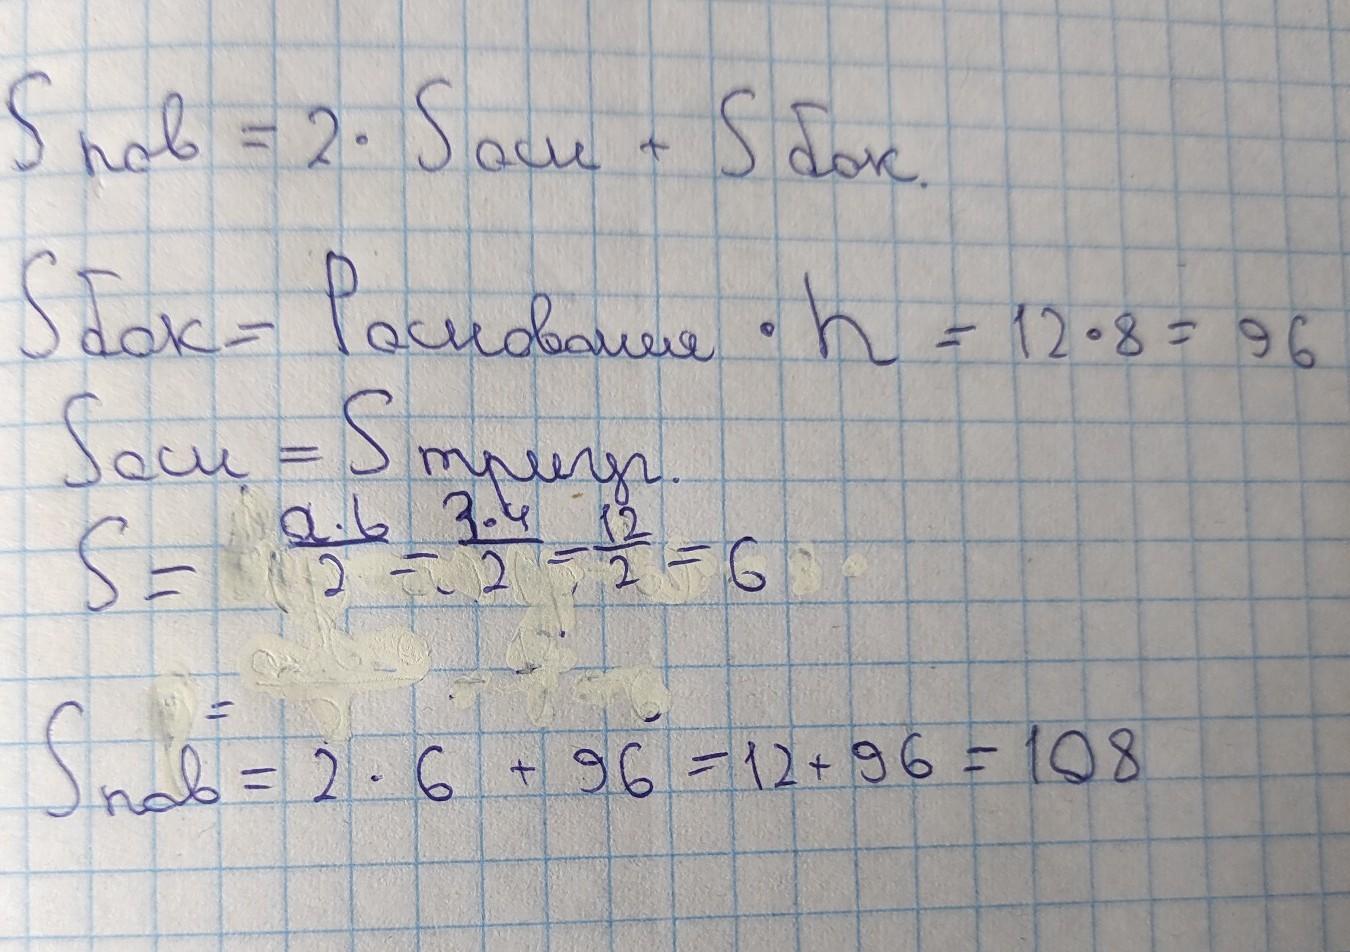 S пов = 2 · S осн + S бок.
S бок = P основания · h = 12 · 8 = 96
S осн = S треуг.
S = a·b/2 = 3·4/2 = 12/2 = 6
=
S пов = 2 · 6 + 96 = 12 + 96 = 108